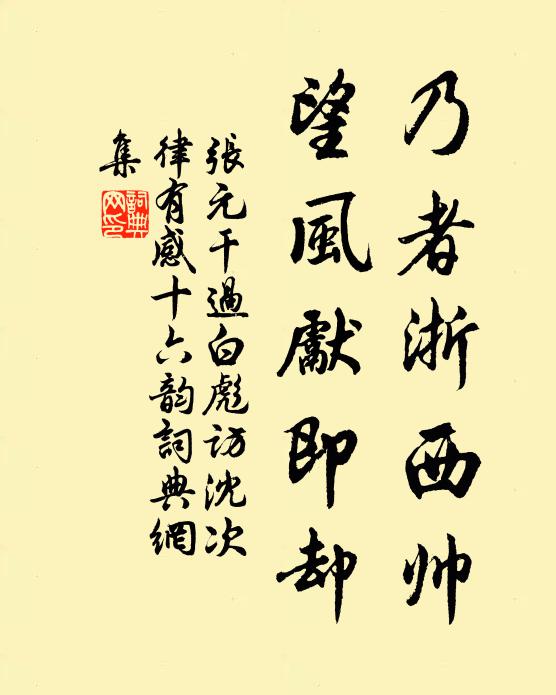 乃者浙西帅
望風獻即却
張元干過白彪訪沈次
律有感十六韵詞典網
集
詞典
网印